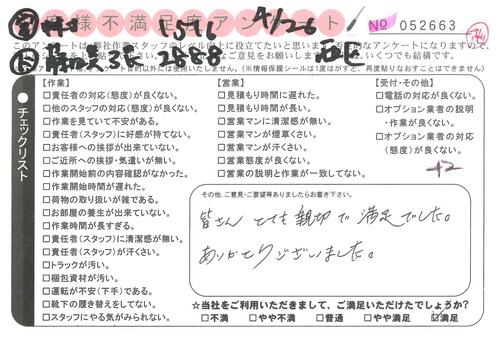 お客様不満足度アンケート
4/26
No 052663
このアンケートは、弊社作業スタッフのレベル向上に役立てたいと思いますので
2888
【作業】
□責任者(態度)が良くない。
□他のスタッフの対応(態度)が良くない。
□作業を見ていて不安がある。
□責任者(スタッフ)に好感が持てない。
□お客様への挨拶が出来ていない。
□ご近所への挨拶・気遣いが無い。
□作業開始前の内容確認がなかった。
□作業開始時間が遅れた。
□荷物の取り扱いが雑である。
□お部屋の養生が出来ていない。
□作業時間が長すぎる。
□責任者(スタッフ)に清潔感が無い。
□責任者(スタッフ)が汗くさい。
□トラックが汚い。
□梱包資材が汚い。
□運転が不安(下手)である。
□靴下の履き替えをしてない。
□スタッフにやる気がみられない。
チェックリスト
【営業】
□見積もり時間に遅れた。
□見積もり時間が長い。
□営業マンに清潔感が無い。
□営業マンが煙草くさい。
□営業マンが汗くさい。
□営業態度が良くない。
□営業の説明と作業が一致してない。
【受付・その他】
□電話の対応が良くない。
□オプション業者の説明
・作業が良くない。
□オプション業者の対応
(態度)が良くない。
+2
その他、ご意見・ご要望等ありましたらお書き下さい。
皆さん とても親切で満足でした。
ありがとうございました。
☆当社をご利用いただきまして、ご満足いただけたでしょうか?
□不満 □やや不満 □普通 □やや満足 ☑満足